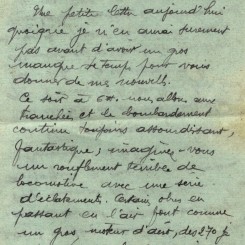 Une petite lettre aujourd'hui
quoique je n'en aurai surement
pas avant d'avoir un gros
manque de temps pour vous
donner de mes nouvelles.
Ce soir à 6h. nous allons aux
tranchées et le bombardement
continu toujours assourdissant,
fantastique, imaginez-vous
un ronflement terrible de
locomotive avec une série
d'éclatements. Certains obus en
passant en l'air font comme
un gros moteur d'avi, des 270 je